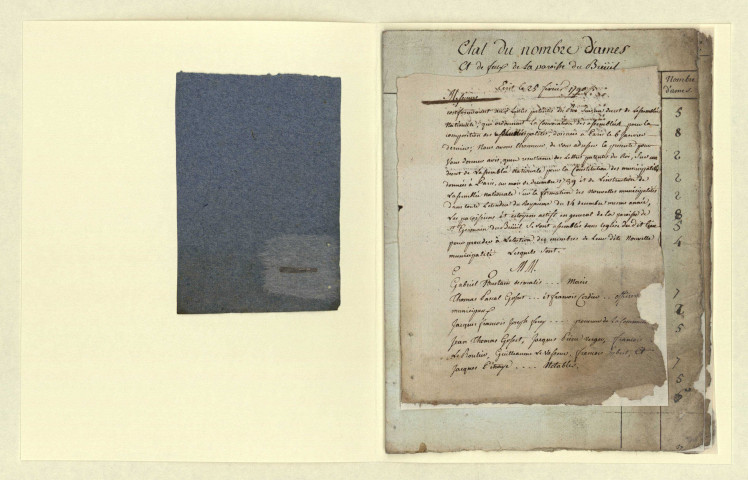 Etat du nombre d'ames
Et de feux de la paroisse du Breüil
Nombre
d'ames
le 25 fevrier 1790
Messieurs
5
conformément aux Lettres patentes du Roi, sur un decret de Lassemblée
Nationale, qui ordonnent la convocation des assemblées pour la
8
composition des assemblées, données à Paris le 6 Janvier
dernier, Nous avons l'honneur de vous adresser la presente pour
2
Vous donner avis, qu'en des Lettres patentes du Roi, sur un
decret de Lassemblée Nationale pour la Constitution des municipalités
2
données à Paris, au mois de decembre 1789 et de Linstruction de
Lassemblée nationale sur la formation des nouvelles municipalités
2
dans toute Létendue du Royaume du 14 decembre meme année,
Les paroissiens et citoyens actifs en general de la paroisse de
8
St Germain du Breüil se sont assemblés dans leglise dudit Lieu
5
pour proceder à Lelection des membres de leur dite Nouvelle
4
municipalité Lesquels sont.
MM.
Gabriel .... Maire
7
Thomas .... et francois .... officiers
municipaux
Jacques francois Joseph .... procureur de la Commune
5
Jean Thomas Gosset, Jacques
Guillaume, francois, et
7
Jacques .... Notables.
5